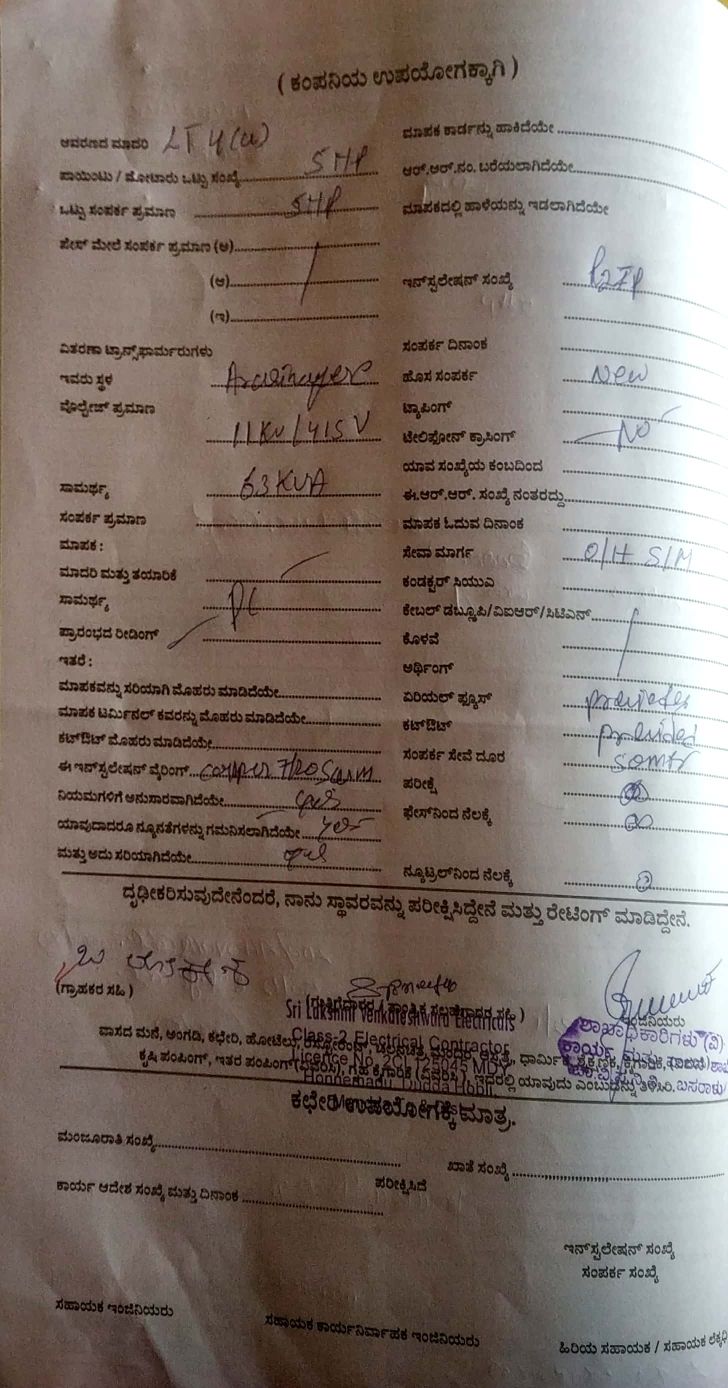 ( ಕಂಪನಿಯ ಉಪಯೋಗಕ್ಕಾಗಿ )
ಆವರಣದ ಮಾದರಿ LT 4(a)
ಪಾಯಿಂಟು / ಮೋಟಾರು ಒಟ್ಟು ಸಂಖ್ಯೆ 5 HP
ಒಟ್ಟು ಸಂಪರ್ಕ ಪ್ರಮಾಣ 5HP
ಫೇಸ್ ಮೇಲೆ ಸಂಪರ್ಕ ಪ್ರಮಾಣ (ಅ)
(ಆ)
(ಇ)
ವಿತರಣಾ ಟ್ರಾನ್ಸ್‌ಫಾರ್ಮರುಗಳು
ಇವರು ಸ್ಥಳ
ವೊಲ್ಟೇಜ್ ಪ್ರಮಾಣ
11 KV / 415 V
ಸಾಮರ್ಥ್ಯ 63 KVA
ಸಂಪರ್ಕ ಪ್ರಮಾಣ
ಮಾಪಕ :
ಮಾದರಿ ಮತ್ತು ತಯಾರಿಕೆ
ಸಾಮರ್ಥ್ಯ
ಪ್ರಾರಂಭದ ರೀಡಿಂಗ್
ಇತರೆ :
ಮಾಪಕವನ್ನು ಸರಿಯಾಗಿ ಮೊಹರು ಮಾಡಿದೆಯೇ
ಮಾಪಕ ಟರ್ಮಿನಲ್ ಕವರನ್ನು ಮೊಹರು ಮಾಡಿದೆಯೇ
ಕಟ್‌ಔಟ್ ಮೊಹರು ಮಾಡಿದೆಯೇ
ಈ ಇನ್ಸ್‌ಟಲೇಷನ್ ವೈರಿಂಗ್
ನಿಯಮಗಳಿಗೆ ಅನುಸಾರವಾಗಿದೆಯೇ
ಯಾವುದಾದರೂ ನ್ಯೂನತೆಗಳನ್ನು ಗಮನಿಸಲಾಗಿದೆಯೇ
ಮತ್ತು ಅದು ಸರಿಯಾಗಿದೆಯೇ
ಮಾಪಕ ಕಾರ್ಡನ್ನು ಹಾಕಿದೆಯೇ
ಆರ್.ಆರ್.ನಂ. ಬರೆಯಲಾಗಿದೆಯೇ
ಮಾಪಕದಲ್ಲಿ ಹಾಳೆಯನ್ನು ಇಡಲಾಗಿದೆಯೇ
ಇನ್‌ಸ್ಟಲೇಷನ್ ಸಂಖ್ಯೆ
ಸಂಪರ್ಕ ದಿನಾಂಕ
ಹೊಸ ಸಂಪರ್ಕ New
ಟ್ಯಾಪಿಂಗ್
ಟೇಲಿಫೋನ್ ಕ್ರಾಸಿಂಗ್ No
ಯಾವ ಸಂಖ್ಯೆಯ ಕಂಬದಿಂದ
ಈ.ಆರ್.ಆರ್. ಸಂಖ್ಯೆ ನಂತರದ್ದು
ಮಾಪಕ ಓದುವ ದಿನಾಂಕ
ಸೇವಾ ಮಾರ್ಗ O/H S/M
ಕಂಡಕ್ಟರ್ ಸಿಯುಎ
ಕೇಬಲ್ ಡಬ್ಲ್ಯೂಪಿ/ವಿಐಆರ್/ಸಿಟಿಎಸ್
ಕೊಳವೆ
ಅರ್ಥಿಂಗ್
ಏರಿಯಲ್ ಫ್ಯೂಸ್
ಕಟ್‌ಔಟ್ provided
ಸಂಪರ್ಕ ಸೇವೆ ದೂರ
ಪರೀಕ್ಷೆ
ಫೇಸ್‌ನಿಂದ ನೆಲಕ್ಕೆ
ನ್ಯೂಟ್ರಲ್‌ನಿಂದ ನೆಲಕ್ಕೆ
ದೃಢೀಕರಿಸುವುದೇನೆಂದರೆ, ನಾನು ಸ್ಥಾವರವನ್ನು ಪರೀಕ್ಷಿಸಿದ್ದೇನೆ ಮತ್ತು ರೇಟಿಂಗ್ ಮಾಡಿದ್ದೇನೆ.
(ಗ್ರಾಹಕರ ಸಹಿ )
Sri Lakshmi Venkateshwara Electricals
Class-2 Electrical Contractor
ವಾಸದ ಮನೆ, ಅಂಗಡಿ, ಕಛೇರಿ, ಹೋಟೆಲು,
ಕೃಷಿ ಪಂಪಿಂಗ್, ಇತರ ಪಂಪಿಂಗ್ ಇದರಲ್ಲಿ ಯಾವುದು ಎಂಬುದನ್ನು ತಿಳಿಸಿರಿ.
ಕಛೇರಿ ಉಪಯೋಗಕ್ಕೆ ಮಾತ್ರ.
ಮಂಜೂರಾತಿ ಸಂಖ್ಯೆ
ಖಾತೆ ಸಂಖ್ಯೆ
ಪರೀಕ್ಷಿಸಿದೆ
ಕಾರ್ಯ ಆದೇಶ ಸಂಖ್ಯೆ ಮತ್ತು ದಿನಾಂಕ
ಇನ್‌ಸ್ಟಲೇಷನ್ ಸಂಖ್ಯೆ
ಸಂಪರ್ಕ ಸಂಖ್ಯೆ
ಸಹಾಯಕ ಇಂಜಿನಿಯರು
ಸಹಾಯಕ ಕಾರ್ಯನಿರ್ವಾಹಕ ಇಂಜಿನಿಯರು
ಹಿರಿಯ ಸಹಾಯಕ / ಸಹಾಯಕ